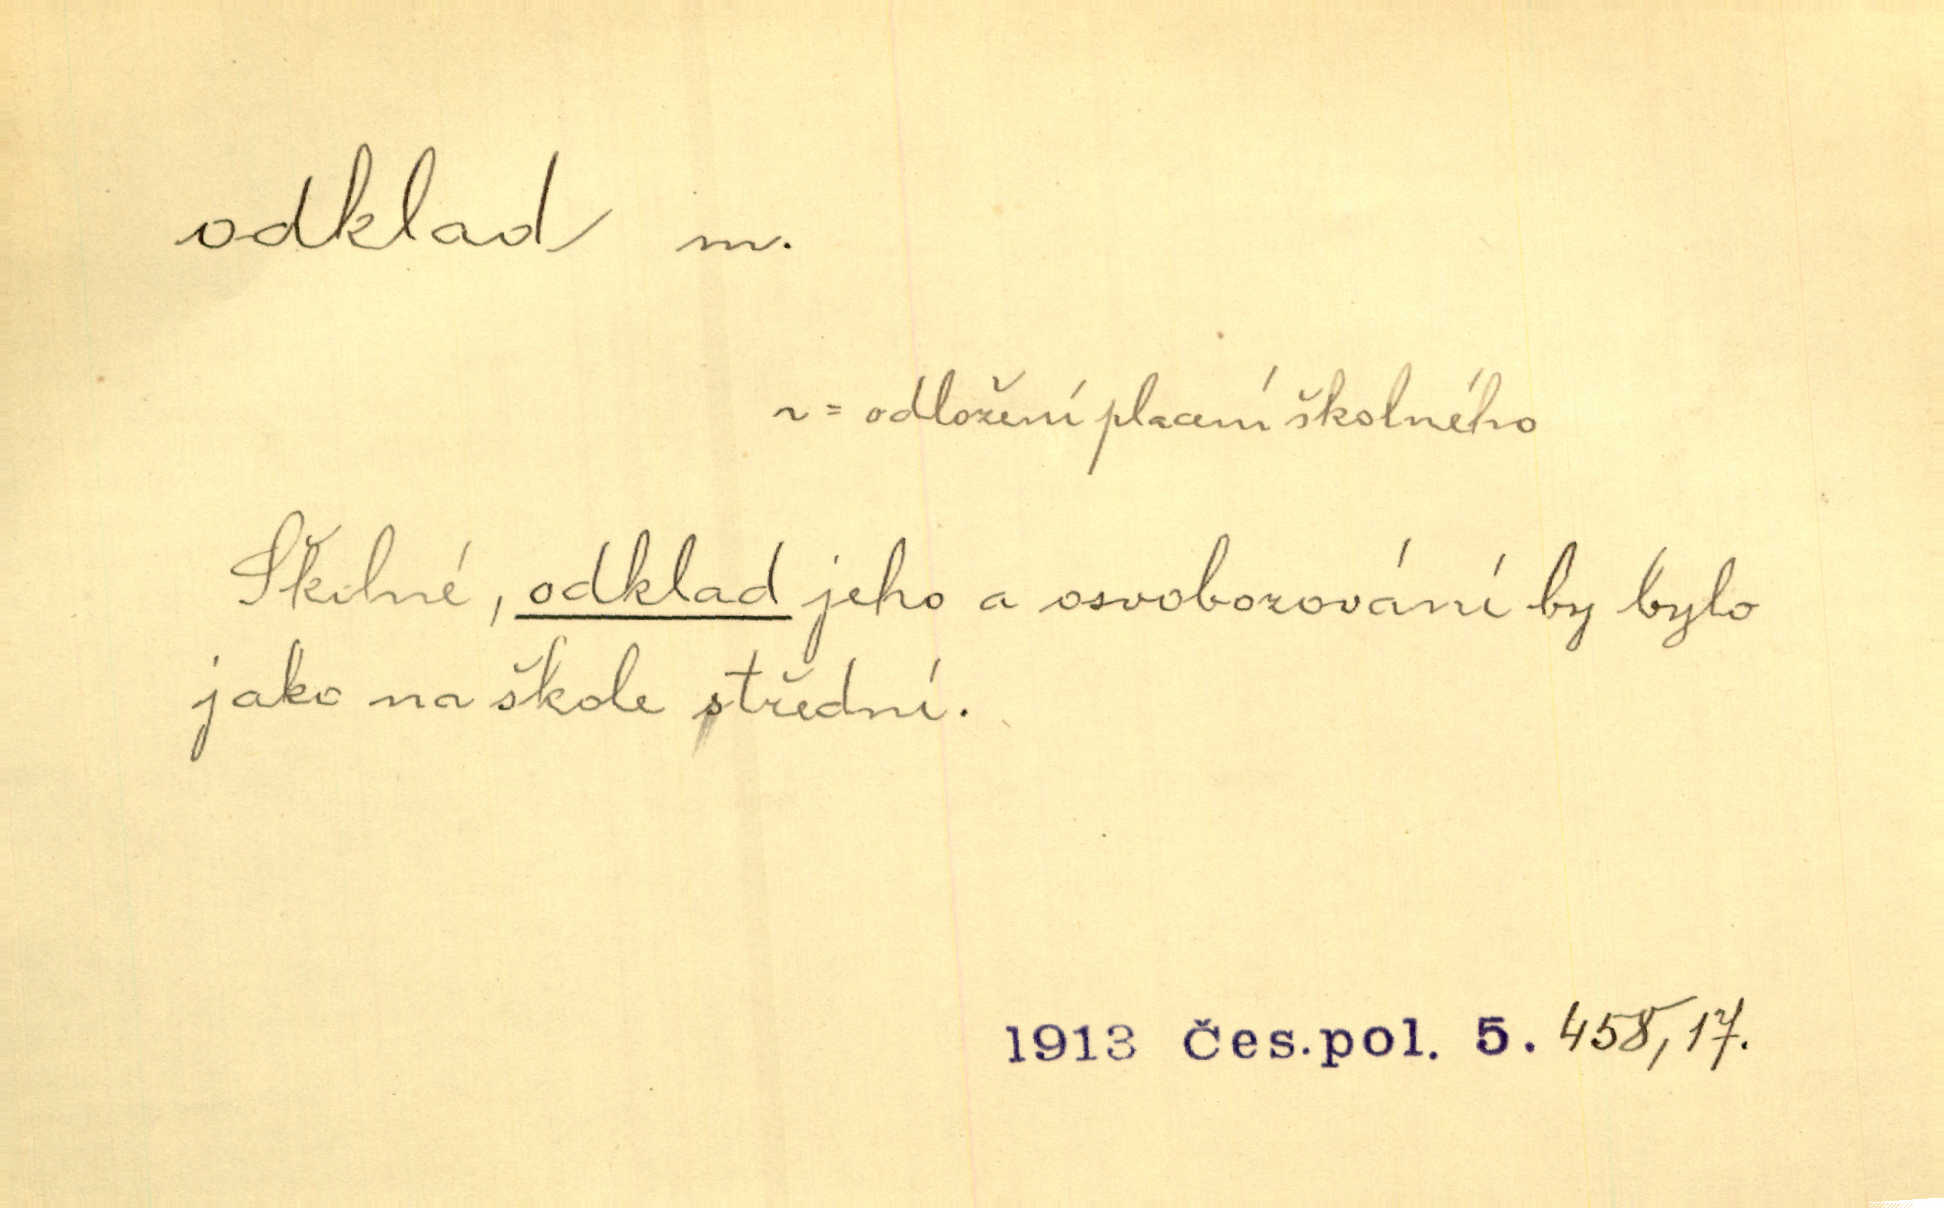 odklad m.
~ = odložení placení školného
Školné, odklad jeho a osvobozování by bylo
jako na škole střední.
1913 Čes.pol. 5. 458, 17.